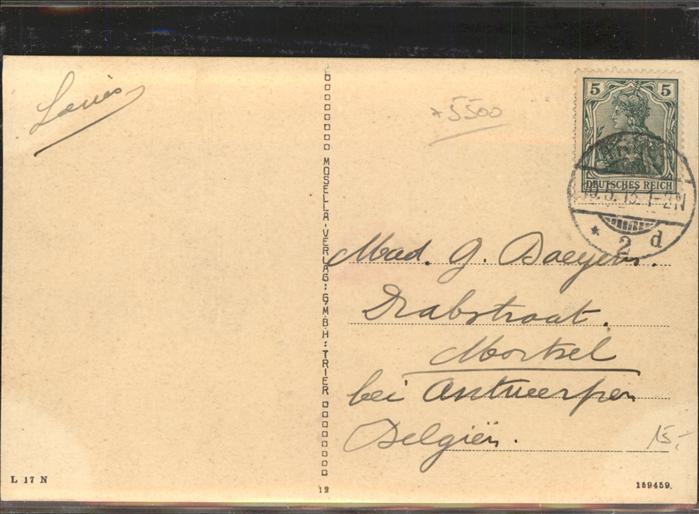 Louis
*5500
5 5
DEUTSCHES REICH
15.5.13.1-2N
* 2 d
MOSELLA-VERLAG: G.M.B.H: TRIER
Mad. G. Baeyens.
Drabstraat.
Mortsel
bei Antwerpen
Belgien.
15.-
L 17 N
12
159459.